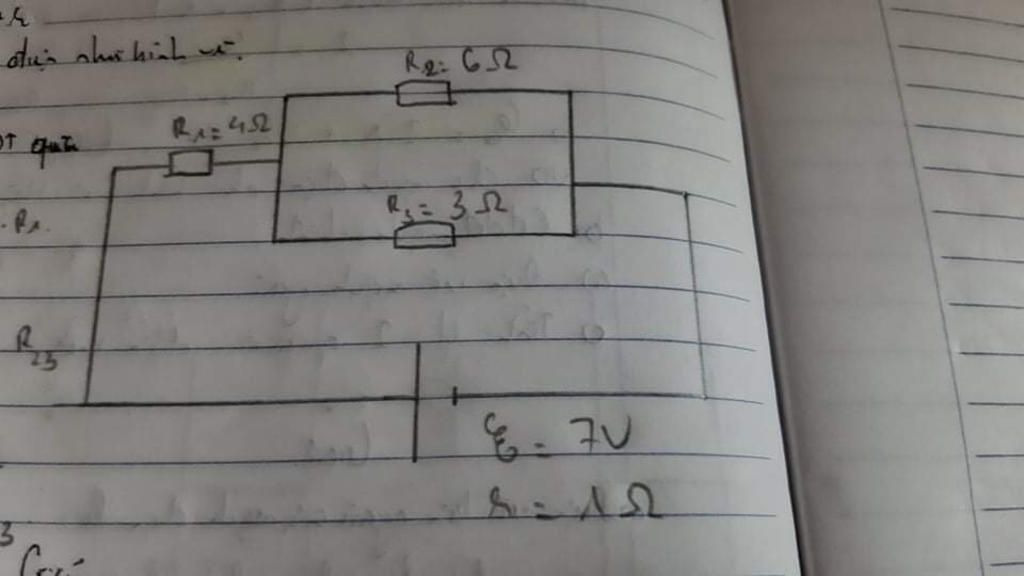 điện như hình vẽ.
R₂= 6Ω
R₁= 4Ω
qua
R₁.
R₃= 3Ω
R₂₃
ξ = 7V
r = 1Ω
3